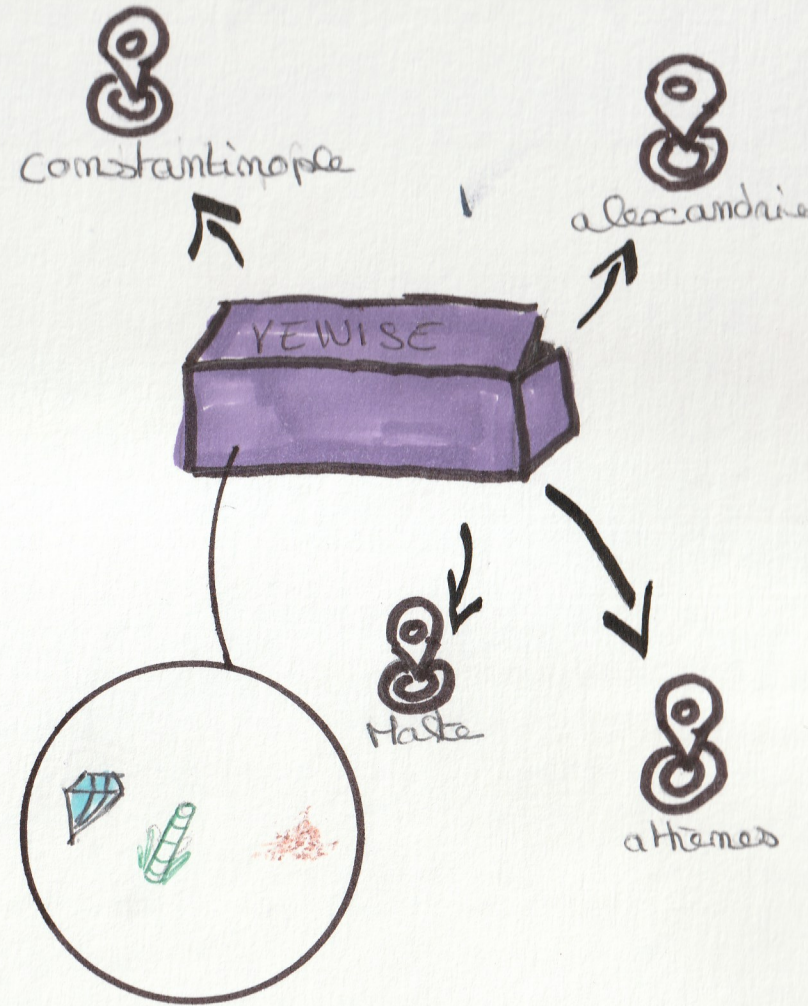 constantinople
alexandrie
VENISE
Malte
athènes